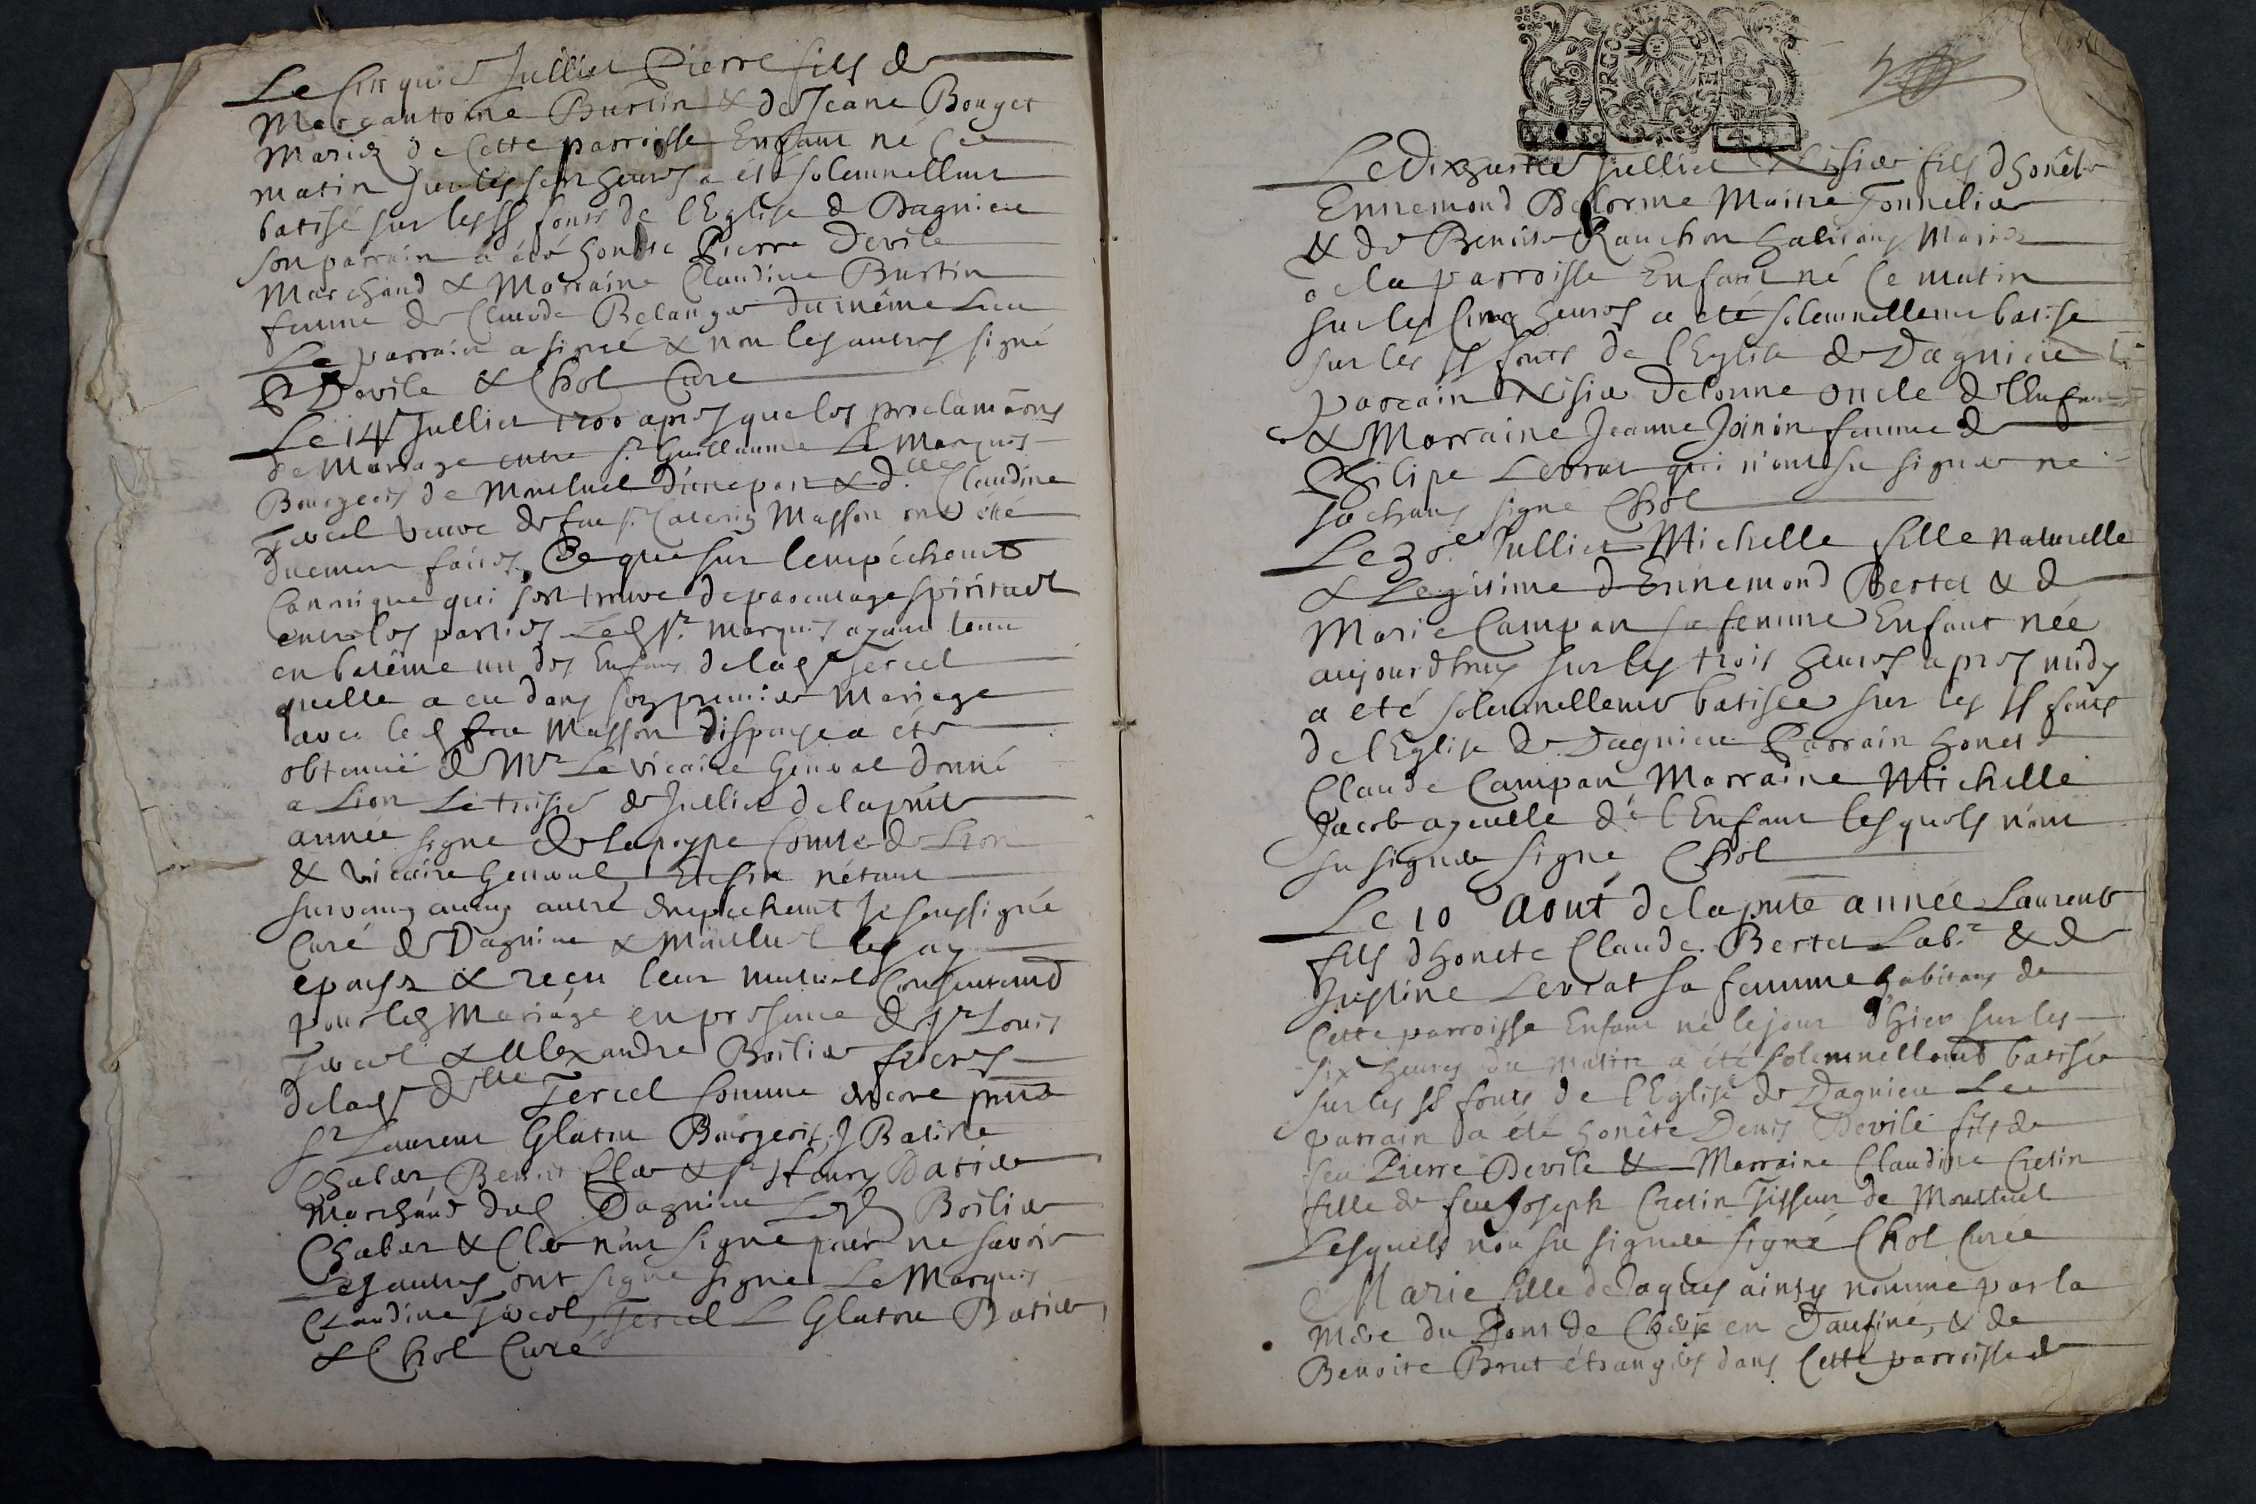 Le Cinquie Jullied Pierre fils de
Marcantoine Burtin & de Jeane Bouget
Mariez de Cette parroisse Enfant né Ce
matin sur les sept heures a été solemnellemt
batisé sur les SS fonts de l'Eglise de Dagnieu
son parrain a été honête Pierre Devile
Marchand & Marraine Claudine Burtin
femme de Claude Belanger du même Lieu
Le parrain a signé & non les autres signé
P Devile & Chol Curé
Le 14e Jullied 1700 apres que les proclamãons
de Mariage entre sr Guillaume Le Marquis
Bourgeois de Montluel d'une part & dlle Claudine
Tercel veuve de feu sr Masson ont été
duement faites, Ce que sur l'empêchemt
Cannnique qui s'est trouvé de parentage spirituel
entre les parties Led sr Marquis ayant tenu
en batême un des Enfans de lad Tercel
quelle a eu dans son premier Mariage
avec led feu Masson dispense a été
obtenüe de Mr Le vicaire General donné
a Lion Le troisie de Jullied de la pñte
année signé de Lapoype Comte de Lion
& vicaire General, Et n'étant
survenu aucun autre empechemt Je soussigné
Curé de Dagnieu & Montluel les ay
epousez & recu leur mutuel Consentemt
pour led Mariage en presence de sr Louis
Tercel & Alexandre Boilie freres
de lad dlle Tercel Comme encore pñts
sr Laurent Glatou Bourgeois, J Batiste
Chaber Benoit Cle & sr Henry Datie
Marchand dud Dagnieu Lesd Boilie
Chaber & Cle n'ont signé pour ne savoir
Les autres ont signé signé Le Marquis
Claudine Tercel, Tercel L Glatou Datie
& Chol Curé
Le Dixhuitie Jullied Nisie fils d'honête
Ennemond Delorme Maitre Tonnelie
& de Benoite Ranchon habitans Mariez
de la parroisse Enfant né Ce matin
sur les Cinq heures a été solemnellemt batisé
sur les SS fonts de l'Eglise de Dagnieu
parrain Nisie Delorme oncle de l'Enfant
& Marraine Jeanne Joinon femme de
Philipe Levrat qui n'ont su signer ne
sachans signé Chol
Le 30e Jullied Michelle fille naturelle
& Legitime d'Ennemond Bertet & de
Marie Campan sa femme Enfant née
aujourdhuy sur les trois heures apres midy
a eté solemnellemt batisée sur les SS fonts
de l'Eglise de Dagnieu Parrain honete
Claude Campan Marraine Michelle
Jacob ayeulle de l'Enfant lesquels n'ont
su signer signé Chol
Le 10 Aout de la pñte année Laurent
fils d'honete Claude Bertet Labr & de
Justine Levrat sa femme habitans de
Cette parroisse Enfant né le jour d'hier sur les
six heures du matin a été solemnellemt batisé
sur les SS fonts de l'Eglise de Dagnieu Le
parrain a été honête Denis Devile fils de
feu Pierre Devile & Marraine Claudine Cretin
fille de feu Joseph Cretin Tisseur de Montluel
Lesquels non su signer signé Chol Curé
Marie fille de Jaques ainsy nommé par la
mère du Pont de en Daufiné, & de
Benoite Brut étrangers dans Cette parroisse